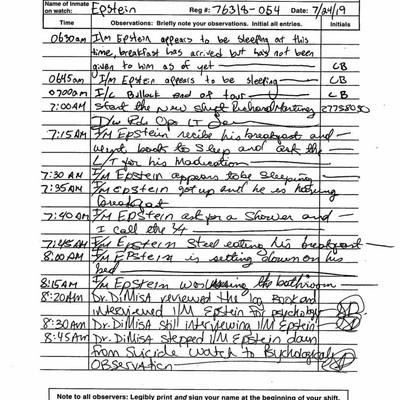 Name of Inmate on watch: Epstein Reg #: 76318-054 Date: 7/24/19
Time Observations: Briefly note your observations. Initial all entries. Initials
0630am I/m Epstein appears to be sleeping at this
time, breakfast has arrived but has not been
given to him as of yet CB
0645am I/m Epstein appears to be sleeping CB
0700am I/C Bullock end of tour CB
7:00AM Start the New shift
7:15AM I/M Epstein recibe his breakfast and
went back to sleep and ask the
L/T for his Madication
7:30 AM I/M Epstein appears to be sleeping
7:35AM I/M Epstein got up and he is having
breakfast
7:40AM I/M Epstein ask for a Shower and
I call the
7:45AM I/M Epstein Steel eating his breakfast
8:00AM I/M Epstein is setting down on his
bed
8:15AM I/M Epstein was using the bathroom
8:20AM Dr. DiMisa reviewed the log book and
interviewed I/M Epstein for psychology
8:30AM Dr. DiMisa still interviewing I/M Epstein
8:45AM Dr. DiMisa stepped I/M Epstein down
from Suicide watch to Psychological
Observation
Note to all observers: Legibly print and sign your name at the beginning of your shift.